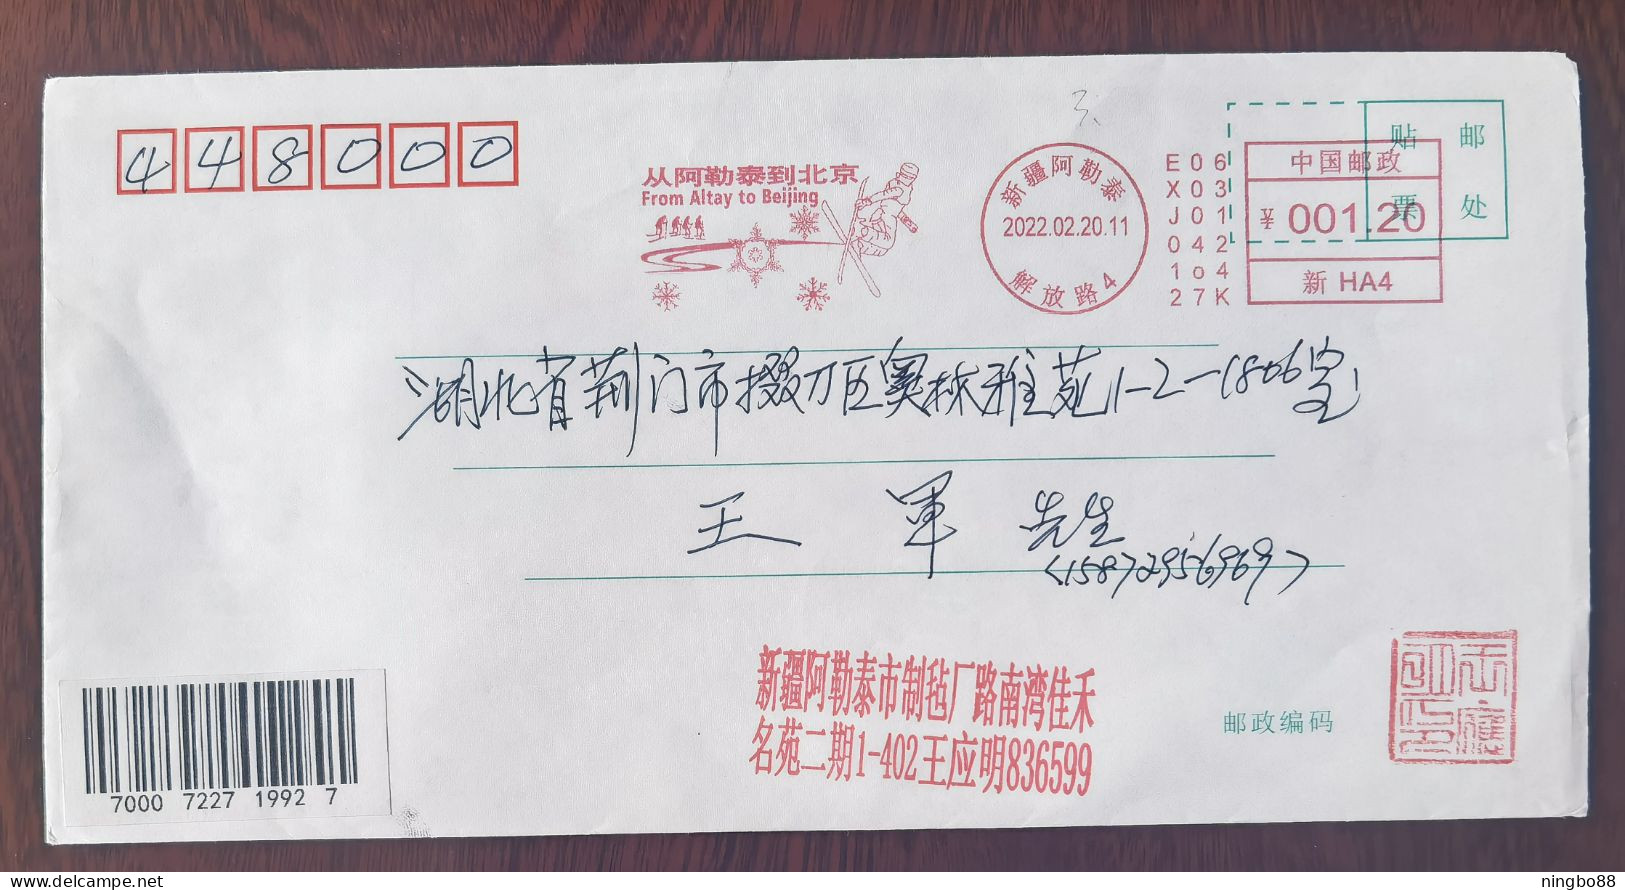 448000
从阿勒泰到北京
From Altay to Beijing
新疆阿勒泰
2022.02.20.11
解放路4
E06
X03
J01
042
1o4
27K
中国邮政
001.20
新 HA4
贴 邮
票 处
湖北省荆门市掇刀区奥林雅苑1-2-1806室
王 军 先生
(15872956969)
新疆阿勒泰市制毡厂路南湾佳禾
名苑二期1-402王应明836599
邮政编码
7000 7227 1992 7
delcampe.net
ningbo88